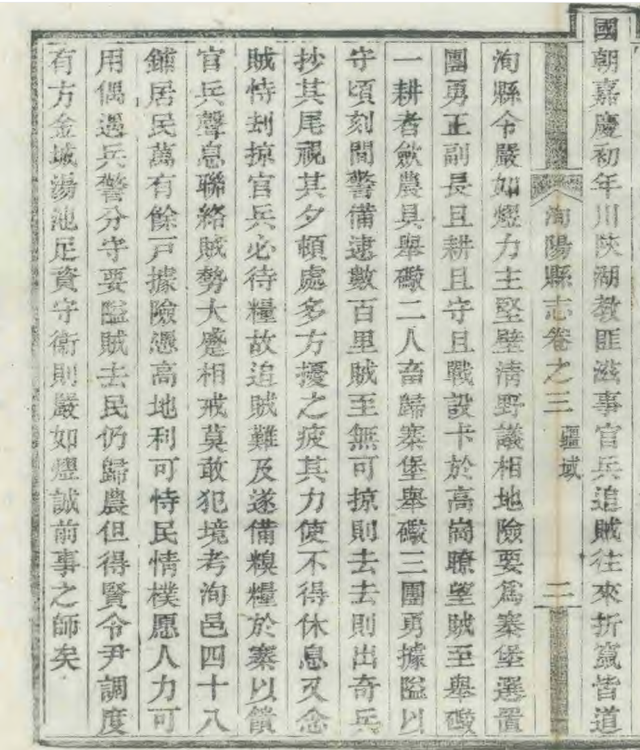 國朝嘉慶初年川陝湖教匪滋事官兵追賊往來折竄皆道
洵陽縣志卷之三 疆域 二
洵縣令嚴如熤力主堅壁清野議相地險要爲寨堡選置
團勇正副長且耕且守且戰設卡於高崗瞭望賊至舉礮
一耕者斂農具舉礮二人畜歸寨堡舉礮三團勇據隘以
守頃刻間警備逮數百里賊至無可掠則去去則出奇兵
抄其尾視其夕頓處多方擾之疲其力使不得休息又念
賊恃刦掠官兵必待糧故追賊難及遂備糗糧於寨以饋
官兵聲息聯絡賊勢大蹙相戒莫敢犯境考洵邑四十八
鎮居民萬有餘戸據險憑高地利可恃民情樸愿人力可
用偶遇兵警分守要隘賊去民仍歸農但得賢令尹調度
有方金城湯池足資守衞則嚴如熤誠前事之師矣